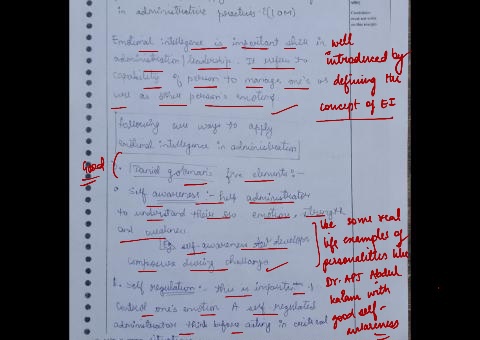 in administrative practices? (10M)
Candidates
must not write
on this margin
Emotional intelligence is important skill in
administration/leadership. It refers to
capability of person to manage one's as
well as other person's emotions.
well
introduced by
defining the
concept of EI
Following are ways to apply
emotional intelligence in administration
Good
1. Daniel goleman's five elements:-
a. Self awareness :- help administrator
to understand their own emotions, strength
and weakness
Eg. self-awareness develops
composure during challenges
Use some real
life examples of
personalities like
Dr. APJ Abdul
Kalam with
good self-
awareness
b. Self regulation:- This is important to
control one's emotion. A self regulated
administrator think before acting in critical